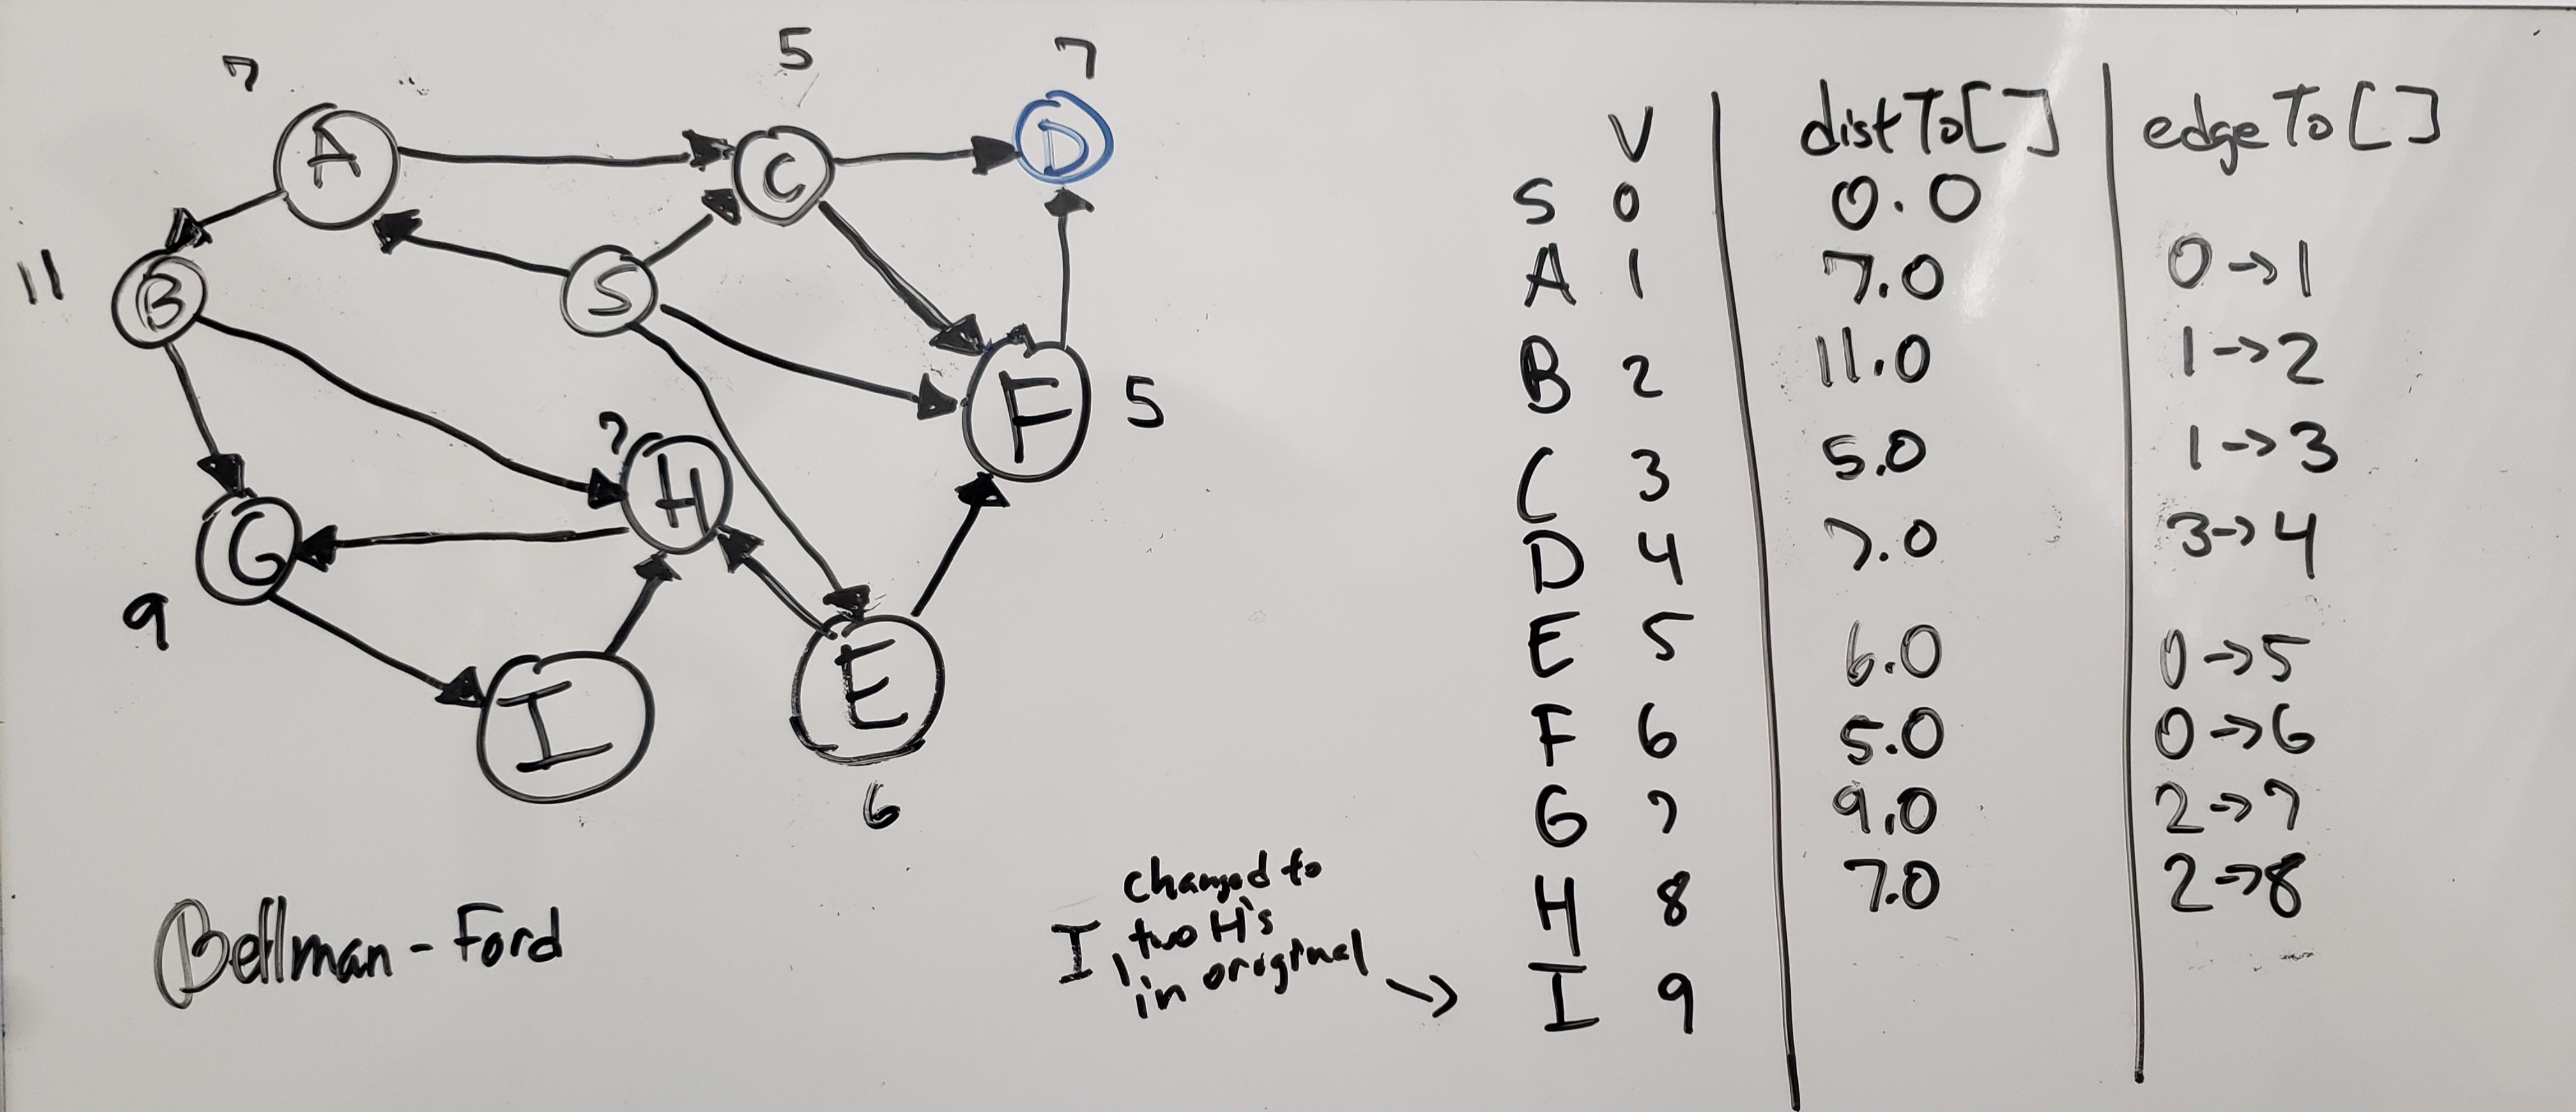 7
5
7
A
C
D
B
S
11
F
5
?
H
G
9
I
E
6
Bellman-Ford
I, changed to
two H's
in original
V distTo[] edgeTo[]
S 0 0.0
A 1 7.0 0→1
B 2 11.0 1→2
C 3 5.0 1→3
D 4 7.0 3→4
E 5 6.0 0→5
F 6 5.0 0→6
G 7 9.0 2→7
H 8 7.0 2→8
I 9